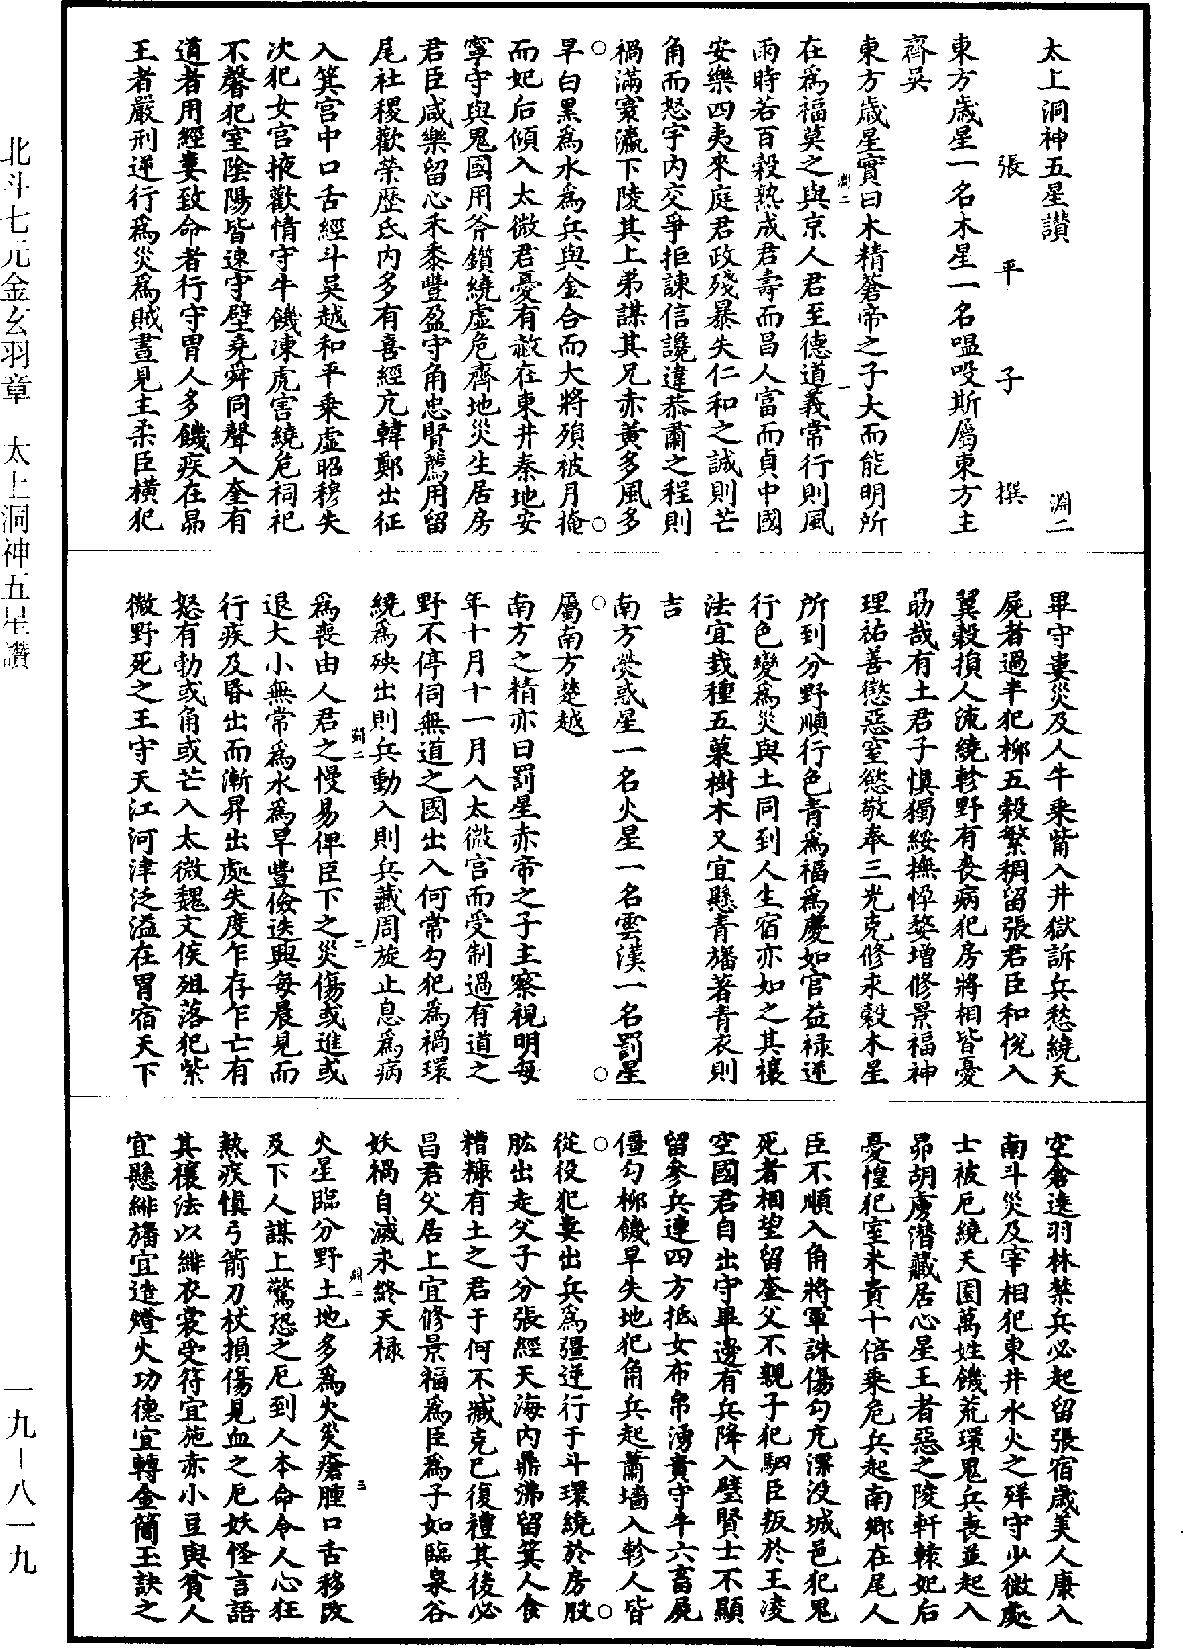 太上洞神五星讚
淵二
張平子撰
東方歲星一名木星一名嗢㕮斯屬東方主
齊吳
東方歲星實曰木精蒼帝之子大而能明所
在爲福莫之與京人君至德道義常行則風
淵二
一
雨時若百穀熟成君壽而昌人富而貞中國
安樂四夷來庭君政殘暴失仁和之誠則芒
角而怒宇内交爭拒諫信讒違恭肅之程則
禍滿寰瀛下陵其上弟謀其兄赤黃多風多
○ ○
旱白黑爲水爲兵與金合而大將殞被月掩
而妃后傾入太微君憂有赦在東井秦地安
寧守與鬼國用斧鑕繞虛危齊地災生居房
君臣咸樂留心禾黍豐盈守角忠賢薦用留
尾社稷歡榮歷氐内多有喜經亢韓鄭出征
入箕宫中口舌經斗吳越和平乘虛昭穆失
次犯女宫掖歡情守牛饑凍虎害繞危祠祀
不馨犯室陰陽皆速守壁堯舜同聲入奎有
道者用經婁致命者行守胃人多饑疾在昴
王者嚴刑逆行爲災爲賊晝見主柔臣橫犯
畢守婁災及人牛乘觜入井獄訴兵愁繞天
屍者過半犯柳五穀繁稠留張君臣和悅入
翼穀損人流繞軫野有喪病犯房將相皆憂
勗哉有土君子慎獨綏撫惸嫠增修景福神
理祐善懲惡窒慾敬奉三光克修求穀木星
所到分野順行色青爲福爲慶如官益禄逆
行色變爲災與土同到人生宿亦如之其禳
法宜栽種五菓樹木又宜懸青旛著青衣則
吉
南方熒惑星一名火星一名雲漢一名罰星
○ ○
屬南方楚越
南方之精亦曰罰星赤帝之子主察視明每
年十月十一月入太微宫而受制過有道之
野不停伺無道之國出入何常勾犯爲禍環
繞爲殃出則兵動入則兵藏周旋止息爲病
淵二
二
爲喪由人君之慢易俾臣下之災傷或進或
退大小無常爲水爲旱豐儉迭興每晨見而
行疾及昏出而漸昇出處失度乍存乍亡有
怒有勃或角或芒入太微魏文侯殂落犯紫
微野死之王守天江河津泛溢在胃宿天下
空倉逵羽林禁兵必起留張宿歲美人康入
南斗災及宰相犯東井水火之殃守少微處
士被厄繞天囷萬姓饑荒環鬼兵喪並起入
昴胡虜潛藏居心星王者惡之陵軒轅妃后
憂惶犯室米貴十倍乘危兵起南鄉在尾人
臣不順入角將軍誅傷勾亢漂没城邑犯鬼
死者相望留奎父不親子犯駟臣叛於王凌
空國君自出守畢邊有兵降入壁賢士不顯
留參兵連四方抵女布帛湧貴守牛六畜屍
僵勾柳饑旱失地犯角兵起蕭墻入軫人皆
○ ○
從役犯婁出兵爲疆逆行于斗環繞於房股
肱出走父子分張經天海内鼎沸留箕人食
糟糠有土之君于何不臧克己復禮其後必
昌君父居上宜修景福爲臣爲子如臨泉谷
妖禍自滅永終天禄
淵二
三
火星臨分野土地多爲火災瘡腫口舌移改
及下人謀上驚恐之厄到人本命令人心狂
熱疾慎弓箭刀杖損傷見血之厄妖怪言語
其禳法以緋衣裳受符宜施赤小豆與貧人
宜懸緋旛宜造燈火功德宜轉金簡玉訣之
北斗七元金玄羽章 太上洞神五星讚
一九—八一九